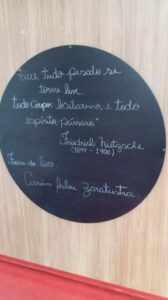 "Que tudo pesado se
torne leve,
todo corpo, bailarino, e todo
espírito, pássaro"
Friedrich Nietzsche.
(1844 - 1900)
Frase do livro.
Assim falou Zaratustra